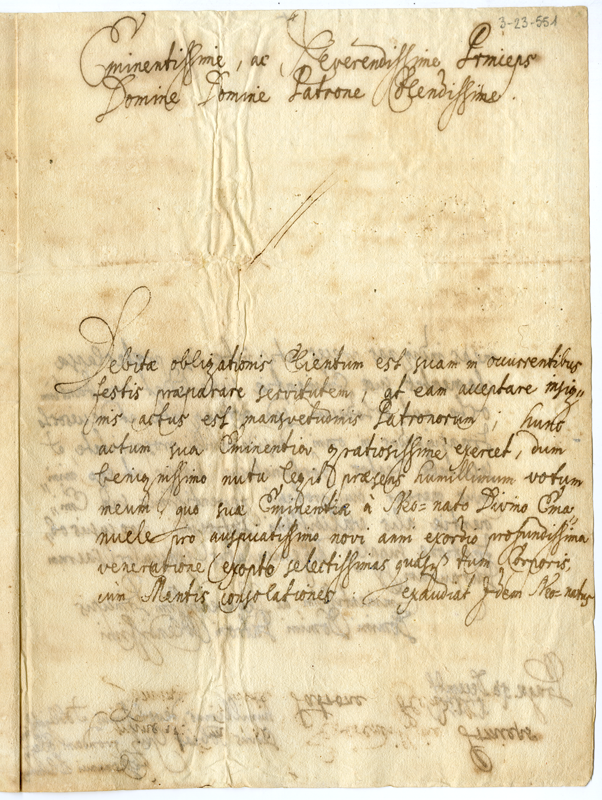 3-23-551
Eminentissime, ac Reverendissime Princeps
Domine Domine Patrone Colendissime.
Debitæ obligationis Clientum est suam in occurrentibus
festis præparare servitutem, at eam acceptare insig=
nis actus est mansvetudinis Patronorum; hunc
actum sua Eminentia gratiosissime exercet, dum
benignissimo nutu legit præsens humillimum votum
meum, quo suæ Eminentiæ à Neo=nato Divino Ema=
nuele pro auspicatissimo novi anni exordio profundissima
veneratione exopto selectissimas quasq3 tum Corporis,
cum Mentis consolationes. Exaudiat Idem Neo=natus